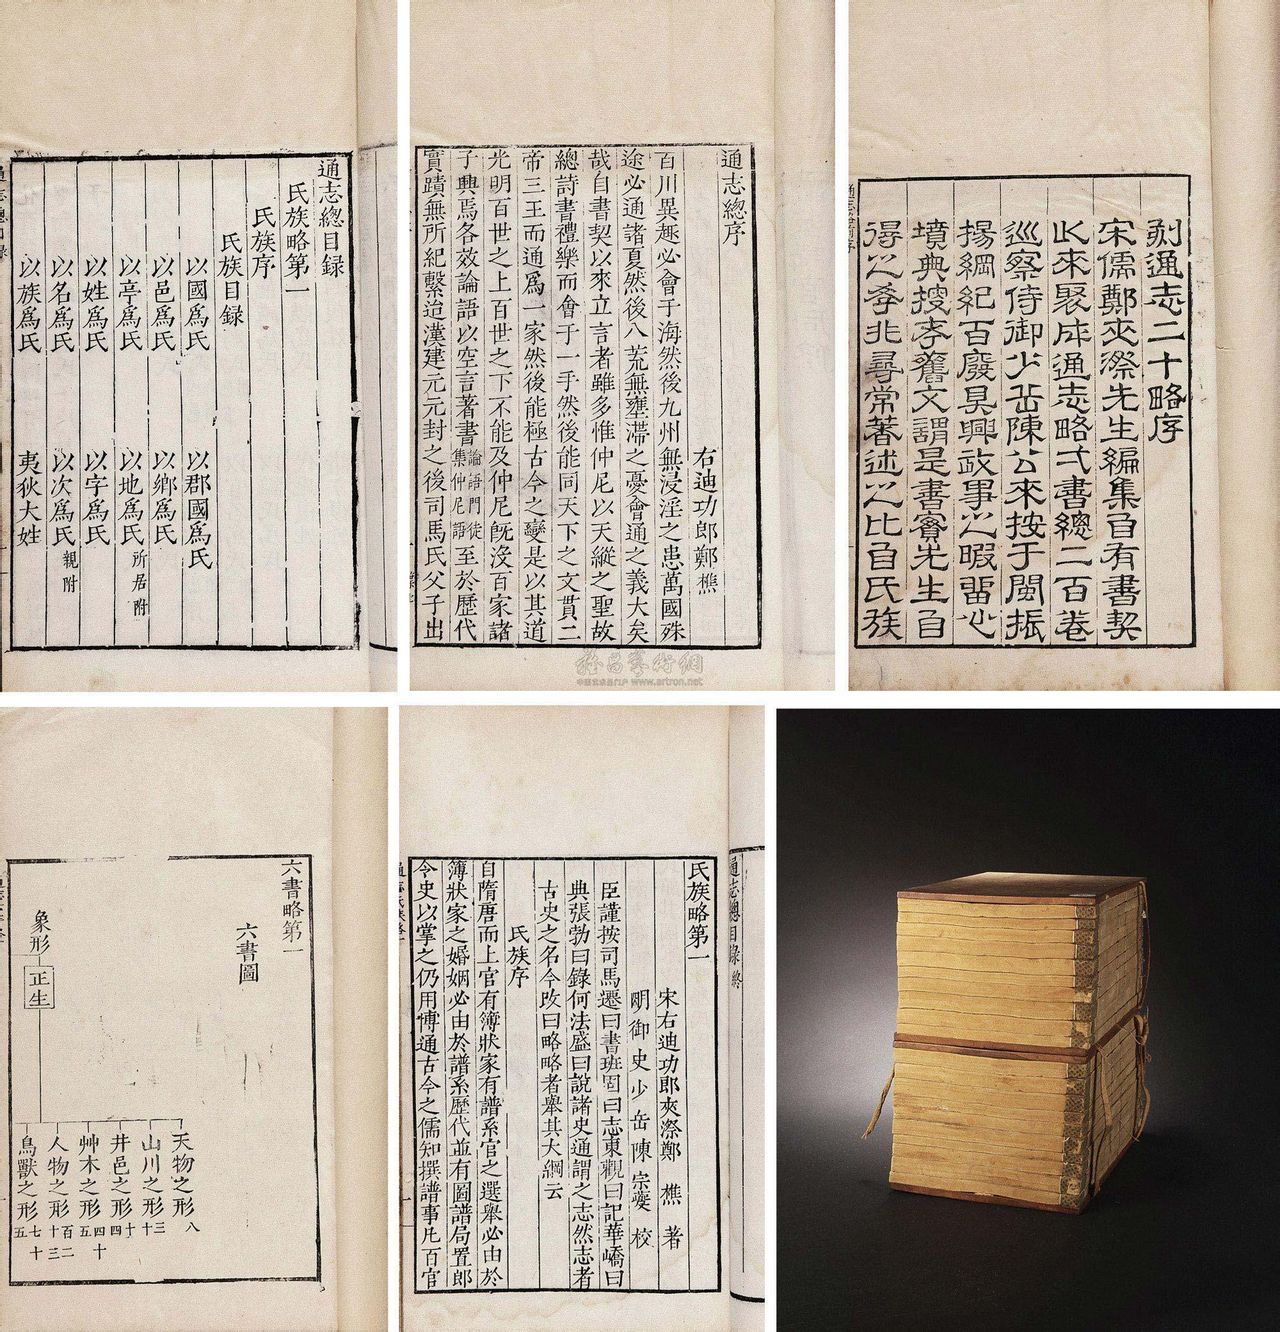 通志總目録
氏族略第一
氏族序
氏族目録
以國爲氏 以郡國爲氏
以邑爲氏 以鄉爲氏
以亭爲氏 以地爲氏 所居附
以姓爲氏 以字爲氏
以名爲氏 以次爲氏 親附
以族爲氏 夷狄大姓
通志總序
右迪功郎鄭樵
百川異趣必會于海然後九州無浸淫之患萬國殊
途必通諸夏然後八荒無壅滯之憂會通之義大矣
哉自書契以來立言者雖多惟仲尼以天縱之聖故
總詩書禮樂而會于一手然後能同天下之文貫二
帝三王而通爲一家然後能極古今之變是以其道
光明百世之上百世之下不能及仲尼旣沒百家諸
子興焉各效論語以空言著書論語門徒集仲尼語至於歷代
實蹟無所紀繫迨漢建元元封之後司馬氏父子出
刻通志二十略序
宋儒鄭夾漈先生編集自有書契
以來聚成通志略弍書總二百卷
巡察侍御少岳陳公來按于閩振
揚綱紀百廢具興政事之暇留心
墳典搜李舊文謂是書寔先生自
得之學非尋常著述之比自氏族
六書略第一
六書圖
象形
正生
天物之形 八
山川之形 三十
井邑之形 十四
艸木之形 四十五
人物之形 百二十三
鳥獸之形 七十五
通志總目録 終
氏族略第一
宋右迪功郎夾漈鄭 樵 著
明御史少岳陳宗夔校
臣謹按司馬遷曰書班固曰志東觀曰記華嶠曰
典張勃曰錄何法盛曰說諸史通謂之志然志者
古史之名今改曰略略者舉其大綱云
氏族序
自隋唐而上官有簿狀家有譜系官之選舉必由於
簿狀家之婚姻必由於譜系歷代並有圖譜局置郎
令史以掌之仍用博通古今之儒知撰譜事凡百官
www.artron.net